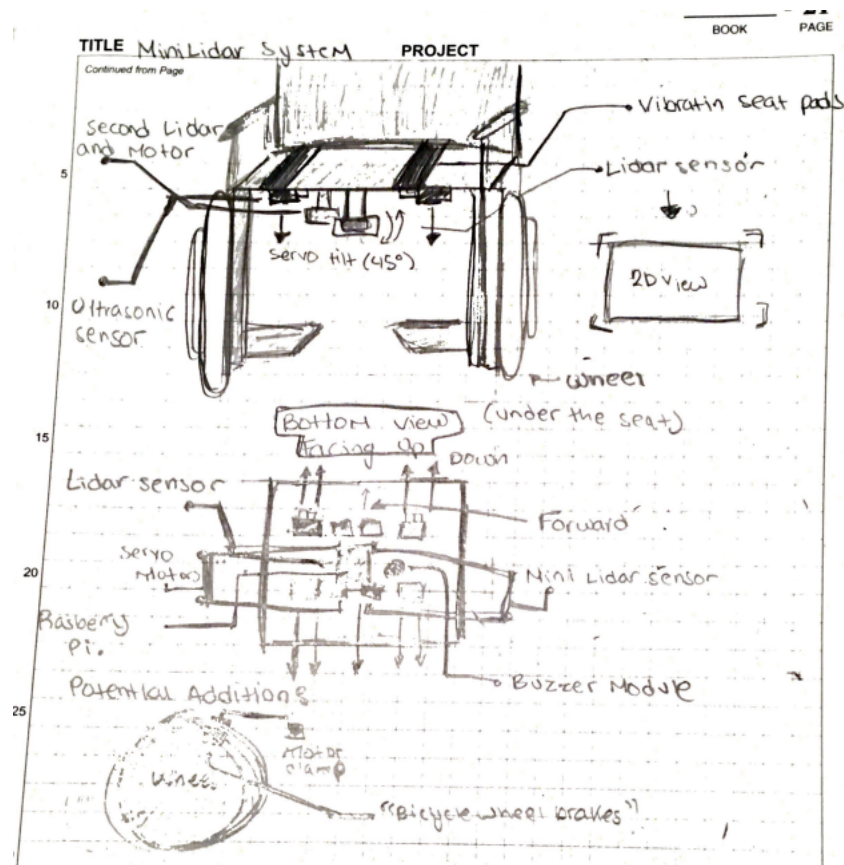 BOOK
PAGE
TITLE MiniLidar SysteM PROJECT
Continued from Page
second Lidar
and Motor
Vibratin seat pads
5
Lidar sensor
servo tilt (45°)
2D View
10
Ultrasonic
sensor
wheel
15
Bottom view
Facing Up
(under the seat)
Down
Lidar sensor
Forward
Servo
Motor
20
Mini Lidar sensor
Rasberry
Pi.
Buzzer Module
Potential Additions
25
Motor
clamp
Wheel
"Bicycle wheel brakes"